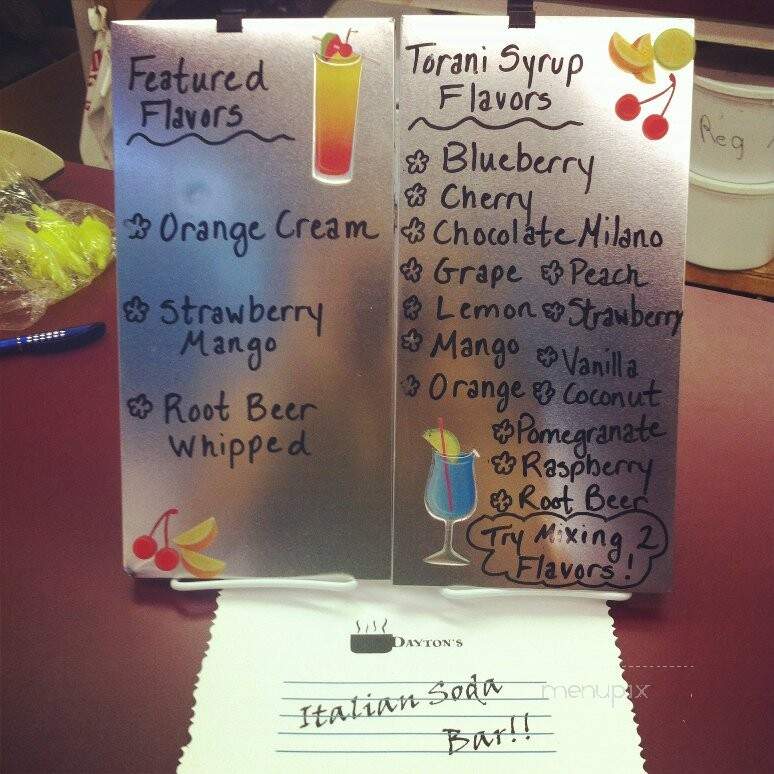 Featured
Flavors
Orange Cream
Strawberry
Mango
Root Beer
Whipped
Torani Syrup
Flavors
Blueberry
Cherry
Chocolate Milano
Grape Peach
Lemon Strawberry
Mango Vanilla
Orange Coconut
Pomegranate
Raspberry
Root Beer
Try Mixing 2
Flavors!
Reg
DAYTON'S
Italian Soda
Bar!!
menupix